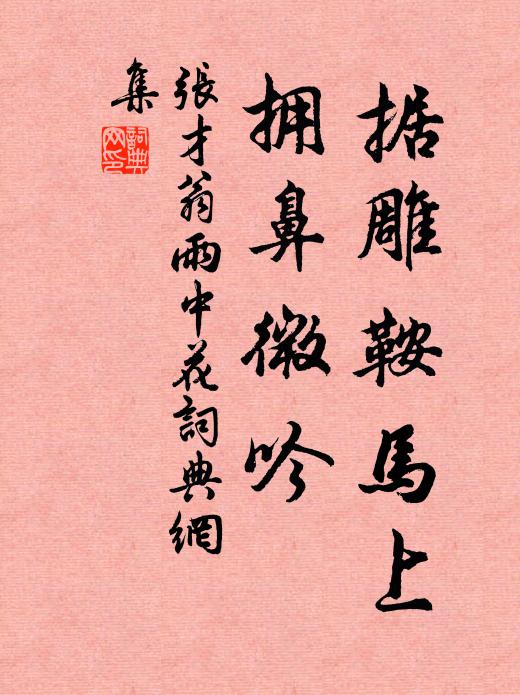 据雕鞍馬上
拥鼻微吟
張才翁雨中花詞典網
集
詞典网印